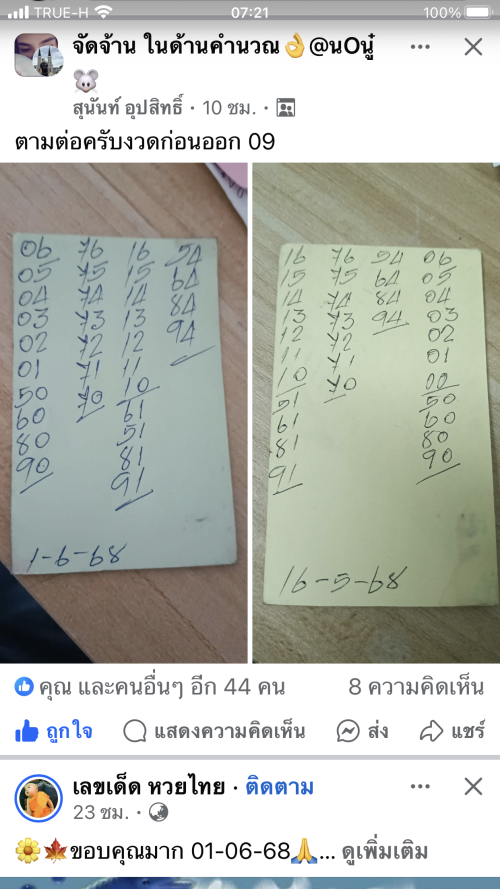 TRUE-H 07:21 100%
จัดจ้าน ในด้านคำนวณ👌@นOนู๋
🐭
สุนันท์ อุปสิทธิ์ · 10 ชม. ·
ตามต่อครับงวดก่อนออก 09
06 76 16 54
05 75 15 64
04 74 14 84
03 73 13 94
02 72 12
01 71 11
50 70 10
60 61
80 51
90 81
91
1-6-68
16 76 54 06
15 75 64 05
14 74 84 04
13 73 94 03
12 72 02
11 71 01
10 70 00
51 50
61 60
81 80
91 90
16-5-68
คุณ และคนอื่นๆ อีก 44 คน 8 ความคิดเห็น
ถูกใจ แสดงความคิดเห็น ส่ง แชร์
เลขเด็ด หวยไทย · ติดตาม
23 ชม. ·
🌼🍁ขอบคุณมาก 01-06-68🙏... ดูเพิ่มเติม